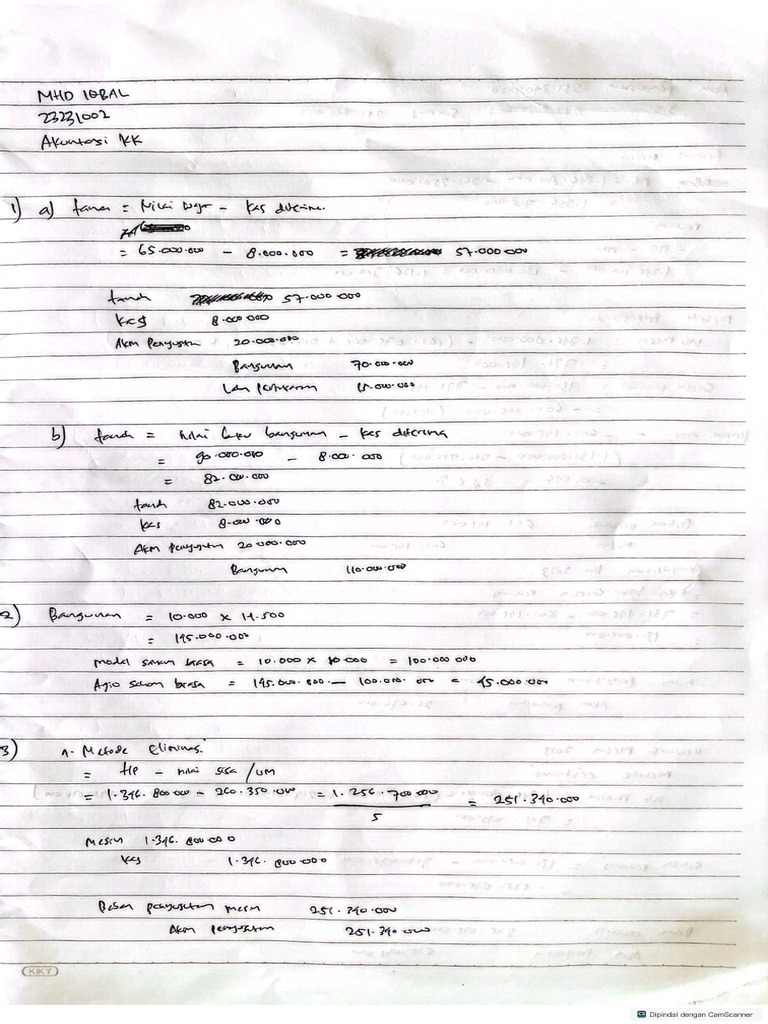 MHD IQBAL
23231002
Akuntasi KK
1) a) tanah = Nilai wajar - kas diterima.
= 65.000.000 - 8.000.000 = 57.000.000
tanah 57.000.000
Kas 8.000.000
Akm Penyusutan 20.000.000
Bangunan 70.000.000
Laba Pertukaran 15.000.000
b) tanah = nilai buku bangunan - kas diterima
= 90.000.000 - 8.000.000
= 82.000.000
tanah 82.000.000
Kas 8.000.000
Akm penyusutan 20.000.000
Bangunan 110.000.000
2) Bangunan = 10.000 x 14.500
= 145.000.000
modal saham biasa = 10.000 x 10.000 = 100.000.000
Agio saham biasa = 145.000.000 - 100.000.000 = 45.000.000
3) 1. Metode Eliminasi
= HP - nilai sisa / UM
= 1.346.800.000 - 260.350.000 = 1.256.700.000 = 251.340.000
5
Mesin 1.346.800.000
Kas 1.346.800.000
Beban penyusutan mesin 251.340.000
Akm penyusutan 251.340.000
KKY
Dipindai dengan CamScanner